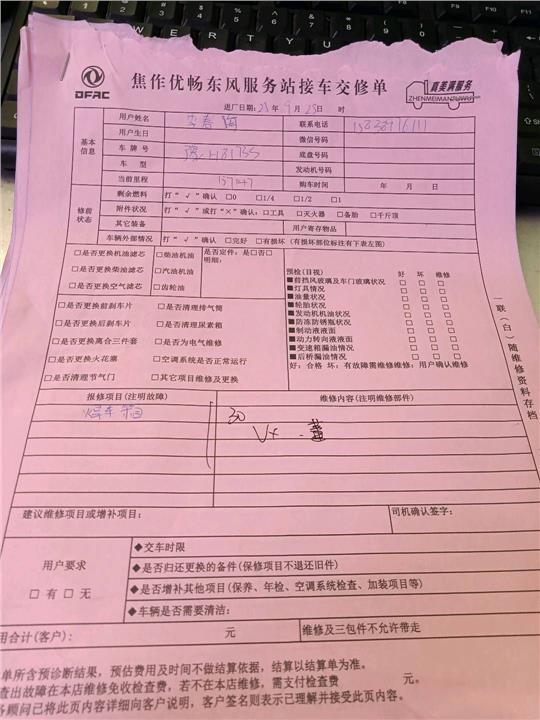 DFAC
焦作优畅东风服务站接车交修单
真美满服务
ZHENMEIMANFUWU
进厂日期: 年 9 月 日 时
基本信息
用户姓名 联系电话
用户生日 微信号码
车牌号 底盘号码
车型 发动机号码
当前里程 购车时间 年 月 日
修前状态
剩余燃料 打“√”确认 □0 □1/4 □1/2 □1
附件状况 打“√”或打“×”确认:□工具 □灭火器 □备胎 □千斤顶
其它装备 用户寄存物品
车辆外部情况 打“√”确认 □完好 □有损坏(有损坏部位标注有下表左图)
□是否更换机油滤芯 □柴油机油 是否定件:是□否□
□是否更换柴油滤芯 □汽油机油 明细:
□是否更换空气滤芯 □齿轮油
□是否更换前刹车片 □是否清理排气筒
□是否更换后刹车片 □是否清理尿素箱
□是否更换离合三件套 □是否为电气维修
□是否更换火花塞 □空调系统是否正常运行
□是否清理节气门 □其它项目维修及更换
预检(目视) 好 坏 维修
■前挡风玻璃及车门玻璃状况 □ □ □
■灯具情况 □ □ □
■油量状况 □ □ □
■轮胎状况 □ □ □
■发动机机油状况 □ □ □
■防冻防锈瓶状况 □ □ □
■制动液液面 □ □ □
■动力转向液液面 □ □ □
■变速箱漏油情况 □ □ □
■后桥漏油情况 □ □ □
好:合格 坏:有故障需维修维修:用户确认维修
一联(白)随维修资料存档
报修项目(注明故障) 维修内容(注明维修部件)
30
建议维修项目或增补项目: 司机确认签字:
用户要求
□有 □无
◆交车时限
◆是否归还更换的备件(保修项目不退还旧件)
◆是否增补其他项目(保养、年检、空调系统检查、加装项目等)
◆车辆是否需要清洁:
用合计(客户): 元 维修及三包件不允许带走
单所含预诊断结果,预估费用及时间不做结算依据,结算以结算单为准。
查出故障在本店维修免收检查费,若不在本店维修,需支付检查费 元。
务顾问已将此页内容详细向客户说明,客户签名则表示已理解并接受此页内容。